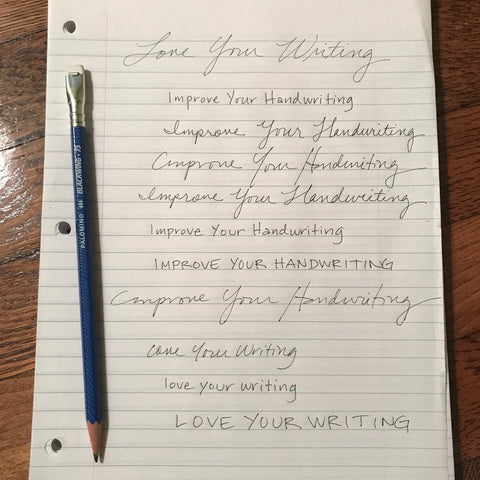 Love Your Writing
Improve Your Handwriting
Improve Your Handwriting
Improve Your Handwriting
Improve Your Handwriting
Improve Your Handwriting
IMPROVE YOUR HANDWRITING
Improve Your Handwriting
Love Your Writing
love your writing
LOVE YOUR WRITING
PALOMINO BLACKWING·73